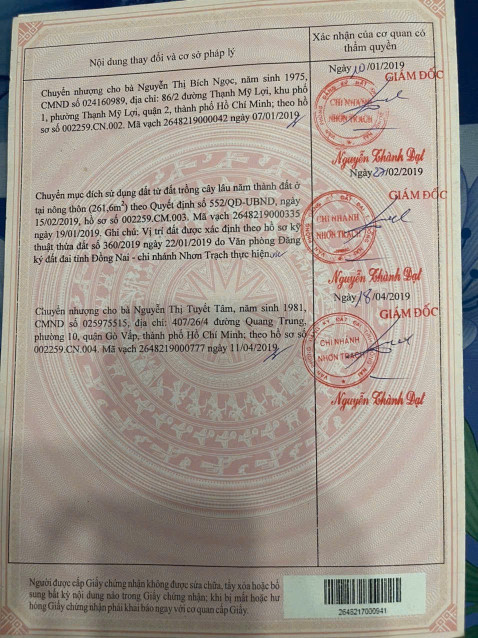 Nội dung thay đổi và cơ sở pháp lý
Xác nhận của cơ quan có
thẩm quyền
Chuyển nhượng cho bà Nguyễn Thị Bích Ngọc, năm sinh 1975,
CMND số 024160989, địa chỉ: 86/2 đường Thạnh Mỹ Lợi, khu phố
1, phường Thạnh Mỹ Lợi, quận 2, thành phố Hồ Chí Minh; theo hồ
sơ số 002259.CN.002. Mã vạch 2648219000042 ngày 07/01/2019
Ngày 10/01/2019
GIÁM ĐỐC
CHI NHÁNH
NHƠN TRẠCH
Nguyễn Thành Đạt
Chuyển mục đích sử dụng đất từ đất trồng cây lâu năm thành đất ở
tại nông thôn (261,6m²) theo Quyết định số 552/QĐ-UBND, ngày
15/02/2019, hồ sơ số 002259.CM.003. Mã vạch 2648219000335
ngày 19/01/2019. Ghi chú: Vị trí đất được xác định theo hồ sơ kỹ
thuật thửa đất số 360/2019 ngày 22/01/2019 do Văn phòng Đăng
ký đất đai tỉnh Đồng Nai - chi nhánh Nhơn Trạch thực hiện
Ngày 27/02/2019
GIÁM ĐỐC
CHI NHÁNH
NHƠN TRẠCH
Nguyễn Thành Đạt
Chuyển nhượng cho bà Nguyễn Thị Tuyết Tâm, năm sinh 1981,
CMND số 025975515, địa chỉ: 407/26/4 đường Quang Trung,
phường 10, quận Gò Vấp, thành phố Hồ Chí Minh; theo hồ sơ số
002259.CN.004. Mã vạch 2648219000777 ngày 11/04/2019
Ngày 18/04/2019
GIÁM ĐỐC
CHI NHÁNH
NHƠN TRẠCH
Nguyễn Thành Đạt
Người được cấp Giấy chứng nhận không được sửa chữa, tẩy xóa hoặc bổ
sung bất kỳ nội dung nào trong Giấy chứng nhận; khi bị mất hoặc hư
hỏng Giấy chứng nhận phải khai báo ngay với cơ quan cấp Giấy.
2648217000941